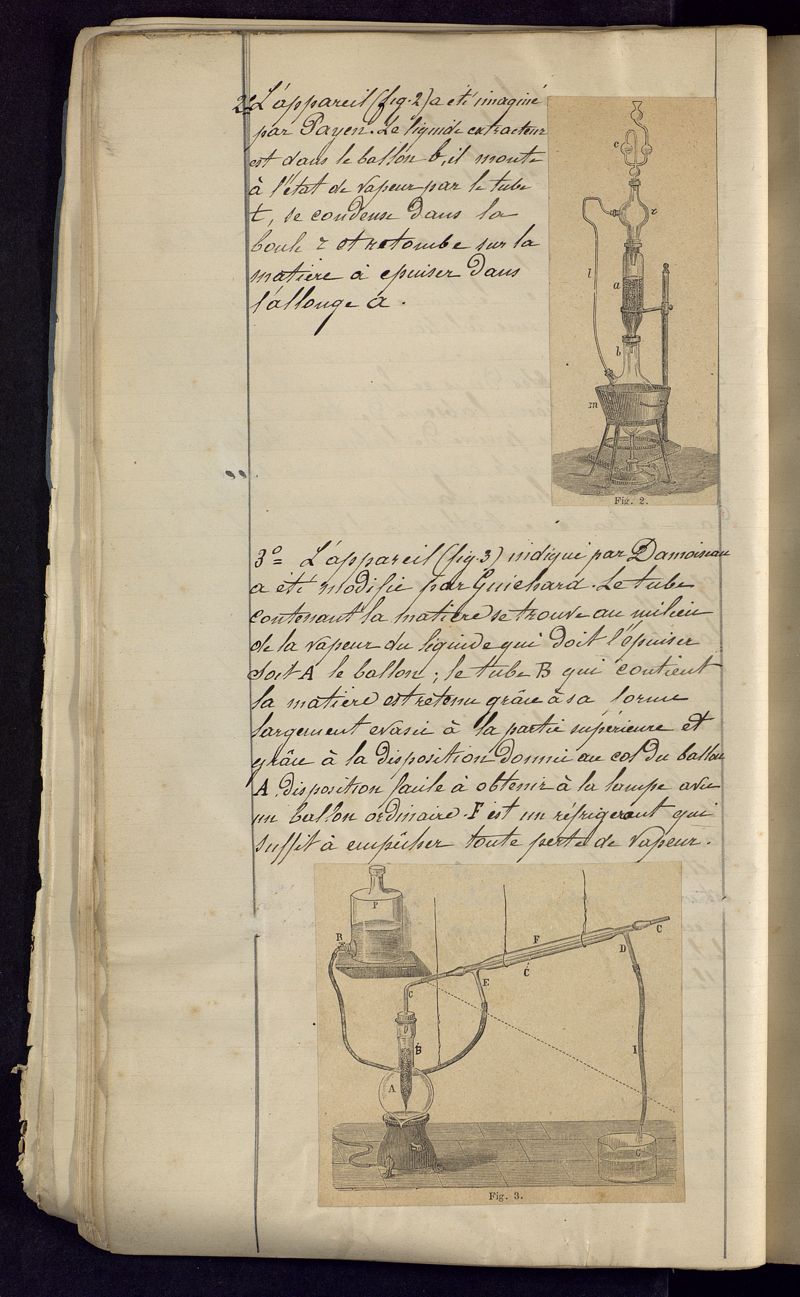 2º L'appareil (fig. 2) a été imaginé
par Payen. Le liquide extracteur
est dans le ballon b, il monte
à l'état de vapeur par le tube
t, se condense dans la
boule r et retombe sur la
matière à epuiser dans
l'allonge a.
c
r
l
a
b
m
Fig. 2.
3º= L'appareil (fig. 3) indiqué par Damoiseau
a été modifie par Guichard. Le tube
contenant la matière se trouve au milieu
de la vapeur du liquide qui doit l'épuiser
soit A le ballon ; le tube B qui contient
la matière est retenu grâce à sa forme
largement evasée à la partie supérieure et
grâce à la disposition donnée au col du ballon
A disposition facile à obtenir à la lampe avec
un ballon ordinaire. F est un réfrigerant qui
suffit à empêcher toute perte de vapeur.
P
R
F
C
C
D
E
C
B
I
A
G
Fig. 3.